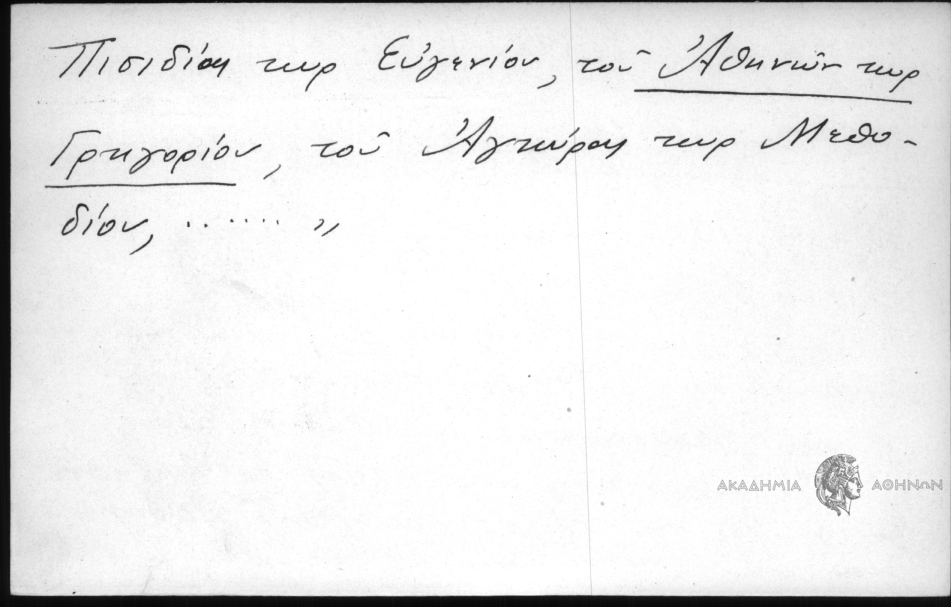 Πισιδίας κυρ Εὐγενίου, τοῦ Ἀθηνῶν κυρ
Γρηγορίου, τοῦ Ἀγκύρας κυρ Μεθο-
δίου, ....... "
ΑΚΑΔΗΜΙΑ ΑΘΗΝΩΝ